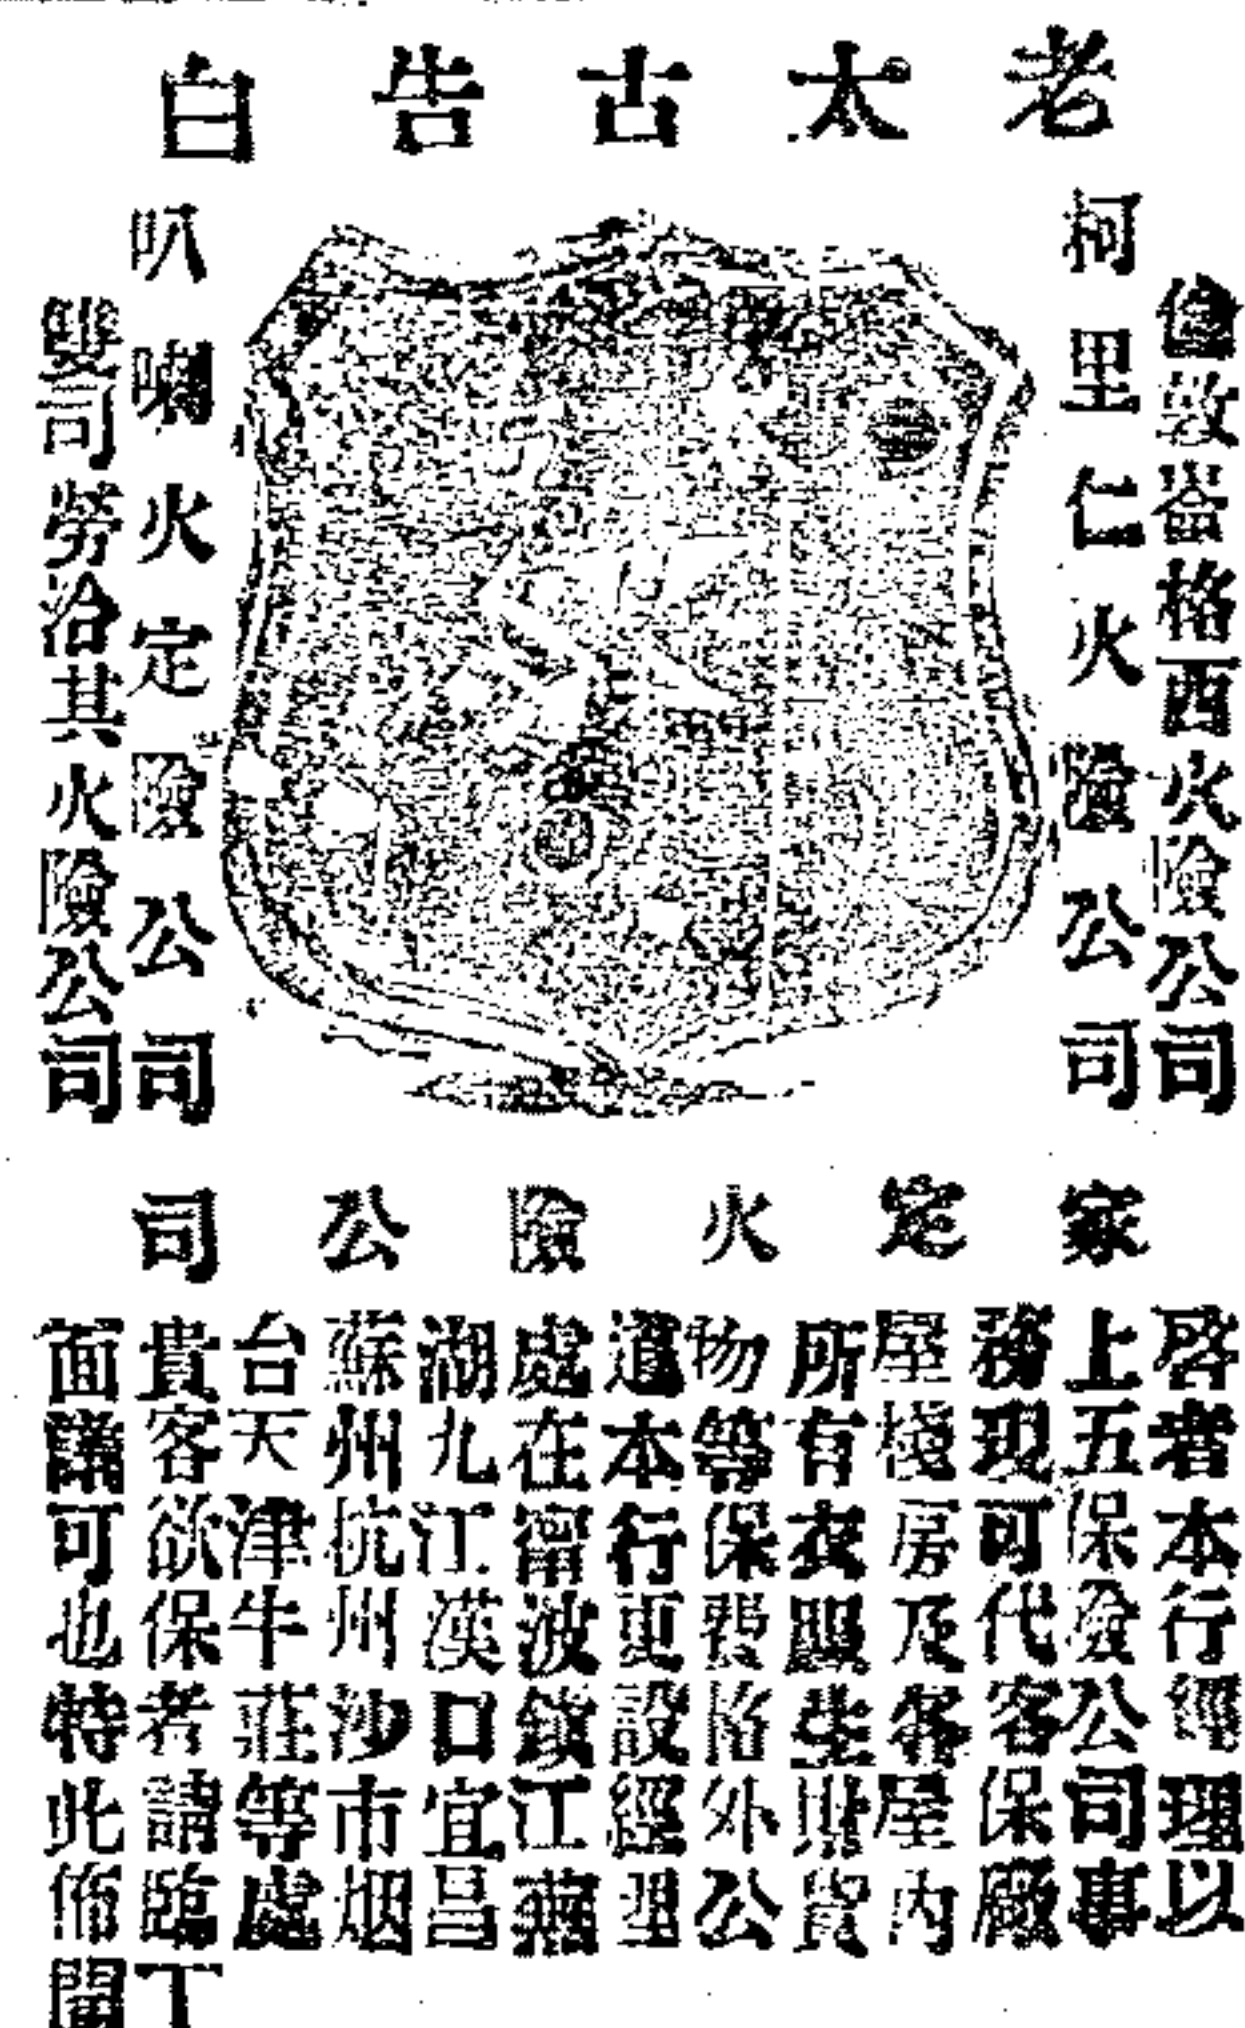 老太古告白
敦崙格西火險公司
柯里仁火險公司
叭喇火定險公司
雙司勞洽其火險公司
家定火險公司
啓者本行經理以
上五保險公司事
務現可代客保廠
屋棧房及客屋內
所有衣服生財貨
物等保費格外公
道本行更設經理
處在甯波鎮江蕪
湖九江漢口宜昌
蘇州杭州沙市烟
台天津牛莊等處
貴客欲保者請臨
面議可也特此佈聞